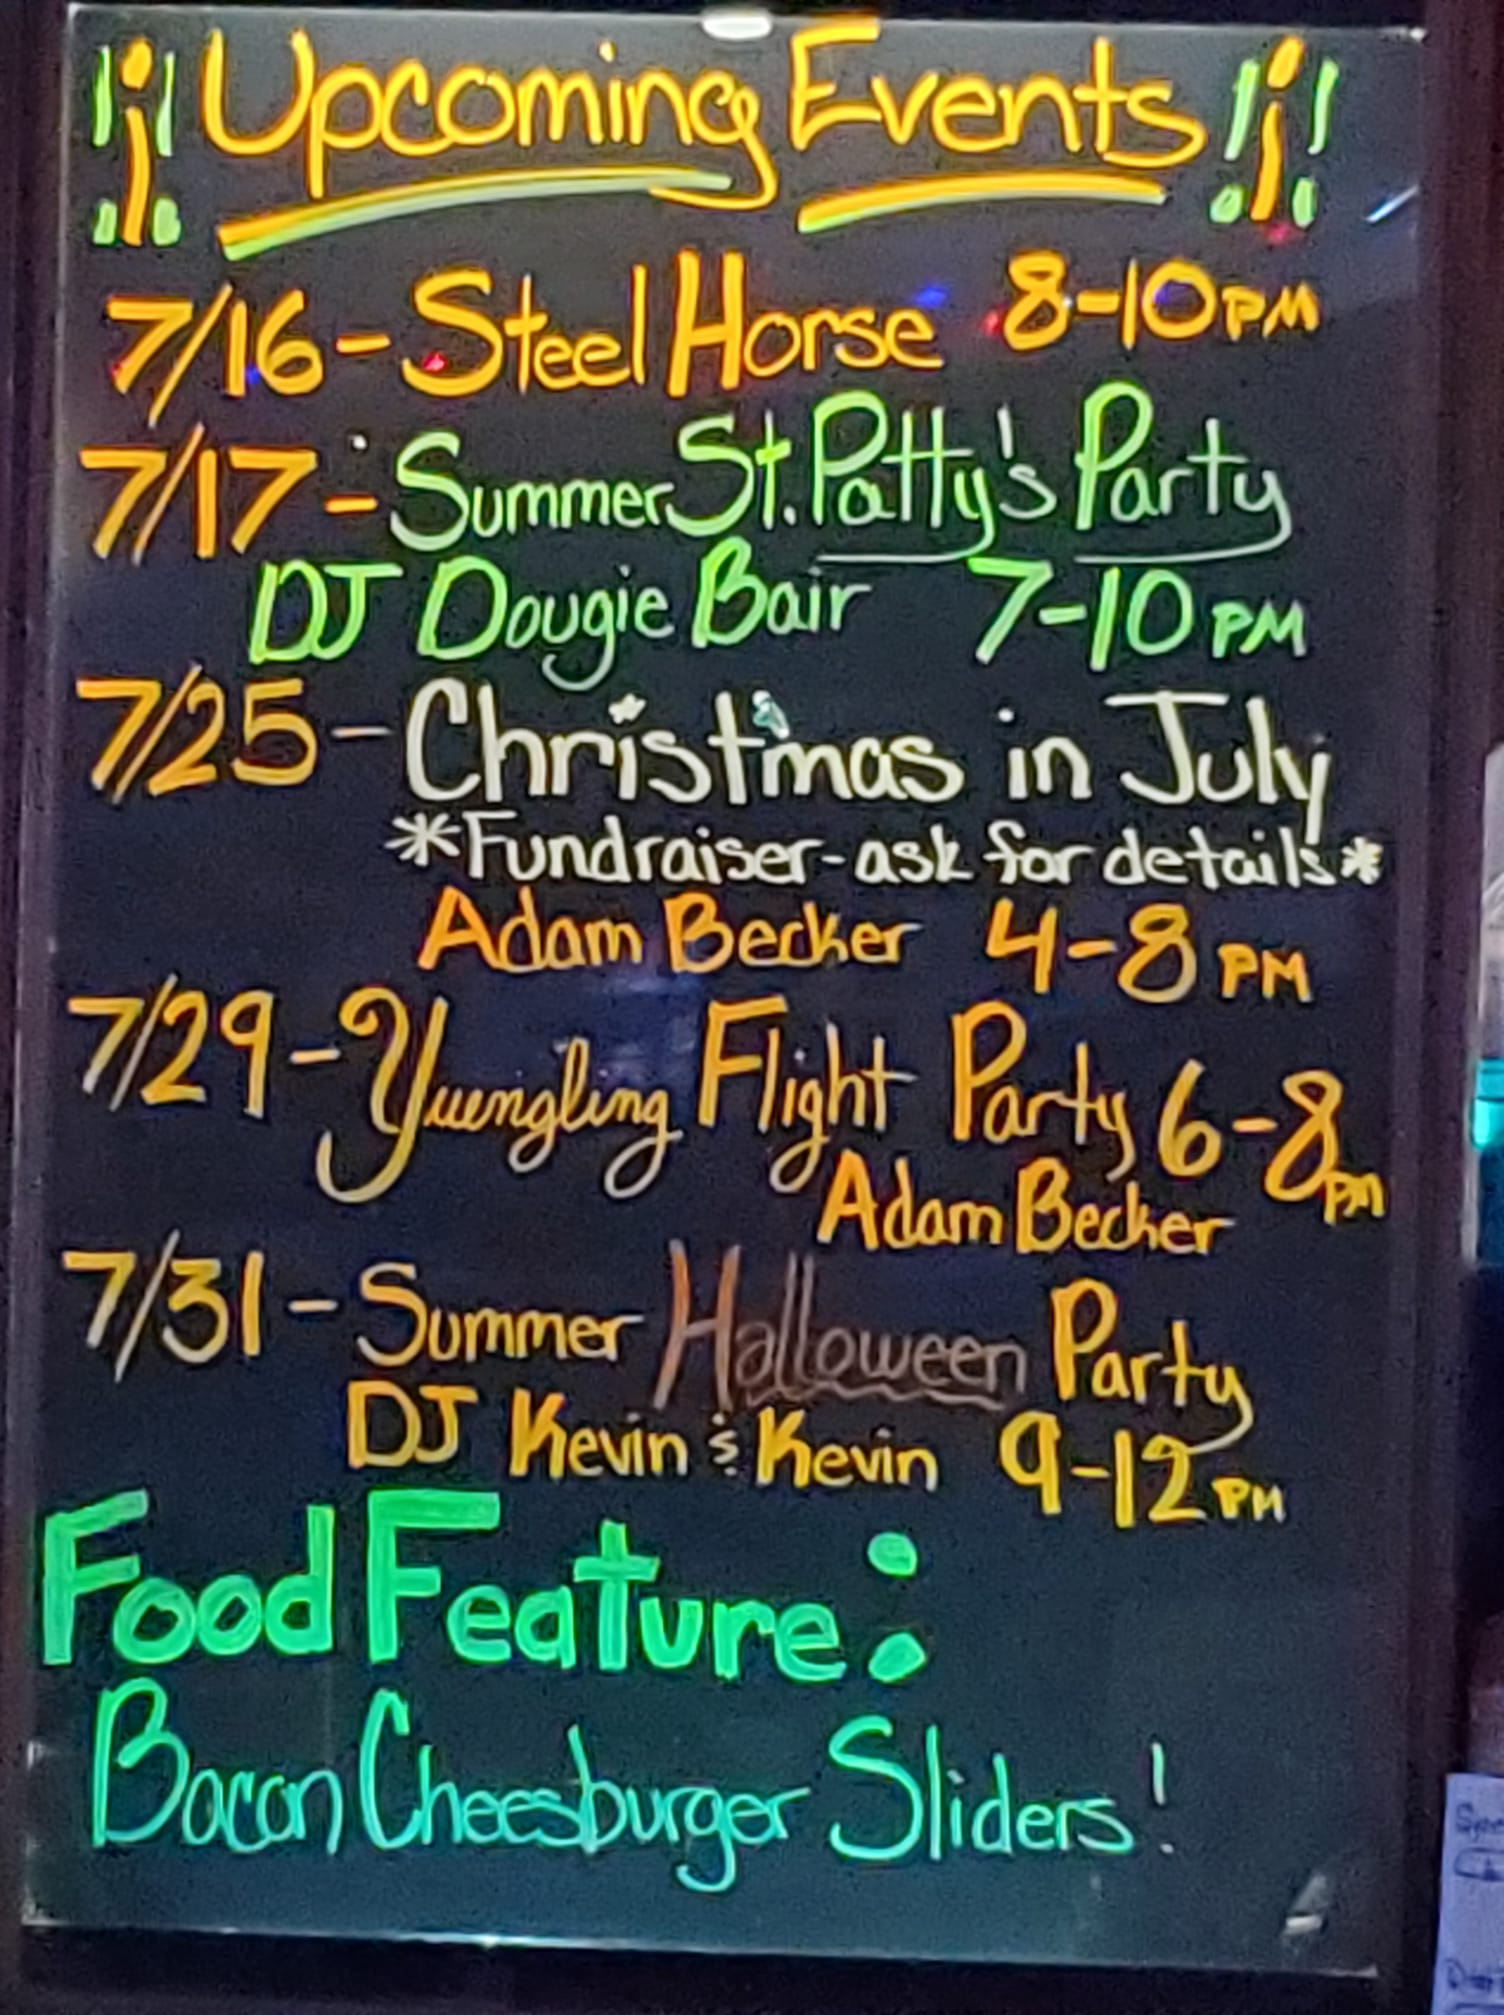 ¡!¡ Upcoming Events !¡!
7/16 - Steel Horse 8-10PM
7/17 - Summer St. Patty's Party
DJ Dougie Bair 7-10PM
7/25 - Christmas in July
*Fundraiser - ask for details*
Adam Becker 4-8PM
7/29 - Yuengling Flight Party 6-8PM
Adam Becker
7/31 - Summer Halloween Party
DJ Kevin & Kevin 9-12PM
Food Feature:
Bacon Cheesburger Sliders!